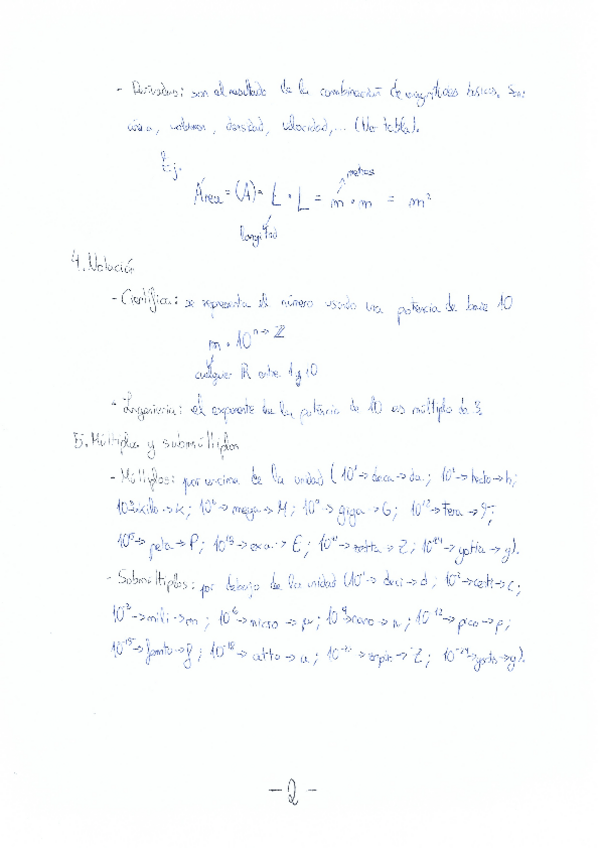 - Derivadas: son el resultado de la combinación de magnitudes básicas. Son:
área, volumen, densidad, velocidad,... (Ver tabla).
Ej.
metros
Área = (A) = L · L = m · m = m²
longitud
4. Notación
- Científica: se representa el número usando una potencia de base 10
m · 10ⁿ → Z
cualquier R entre 1 y 10
- Ingeniería: el exponente de la potencia de 10 es múltiplo de 3.
5. Múltiplos y submúltiplos
- Múltiplos: por encima de la unidad (10¹ → deca → da; 10² → hecto → h;
10³ → kilo → k; 10⁶ → mega → M; 10⁹ → giga → G; 10¹² → Tera → T;
10¹⁵ → peta → P; 10¹⁸ → exa → E; 10²¹ → zetta → Z; 10²⁴ → yotta → y).
- Submúltiplos: por debajo de la unidad (10⁻¹ → deci → d; 10⁻² → centi → c;
10⁻³ → mili → m; 10⁻⁶ → micro → μ; 10⁻⁹ → nano → n; 10⁻¹² → pico → p;
10⁻¹⁵ → femto → f; 10⁻¹⁸ → atto → a; → Z; 10⁻²⁴ → yocto → y).
- 2 -